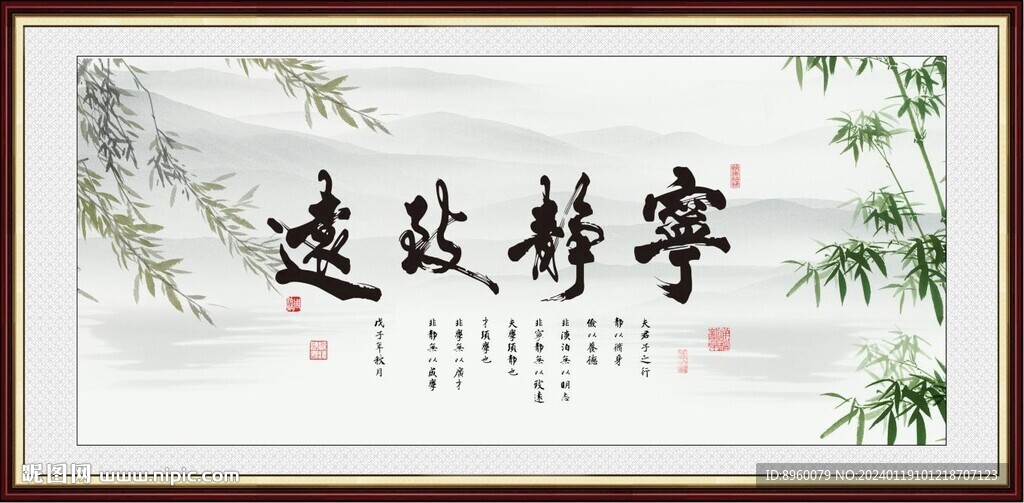 寧靜致遠
夫君子之行
靜以脩身
儉以養德
非淡泊無以明志
非寧靜無以致遠
夫學須靜也
才須學也
非學無以廣才
非靜無以成學
戊子年秋月
昵图网 www.nipic.com
ID:8960079 NO:20240119101218707123